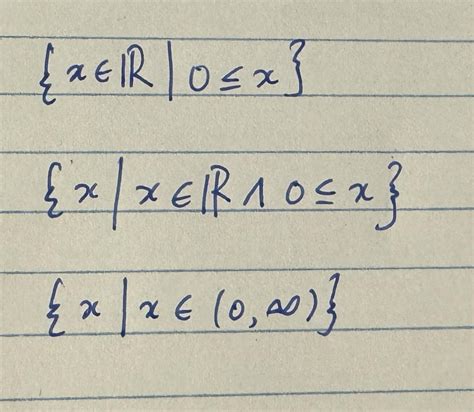 {x∈ℝ | 0 ≤ x}
{x | x ∈ ℝ ∧ 0 ≤ x}
{x | x ∈ (0, ∞)}